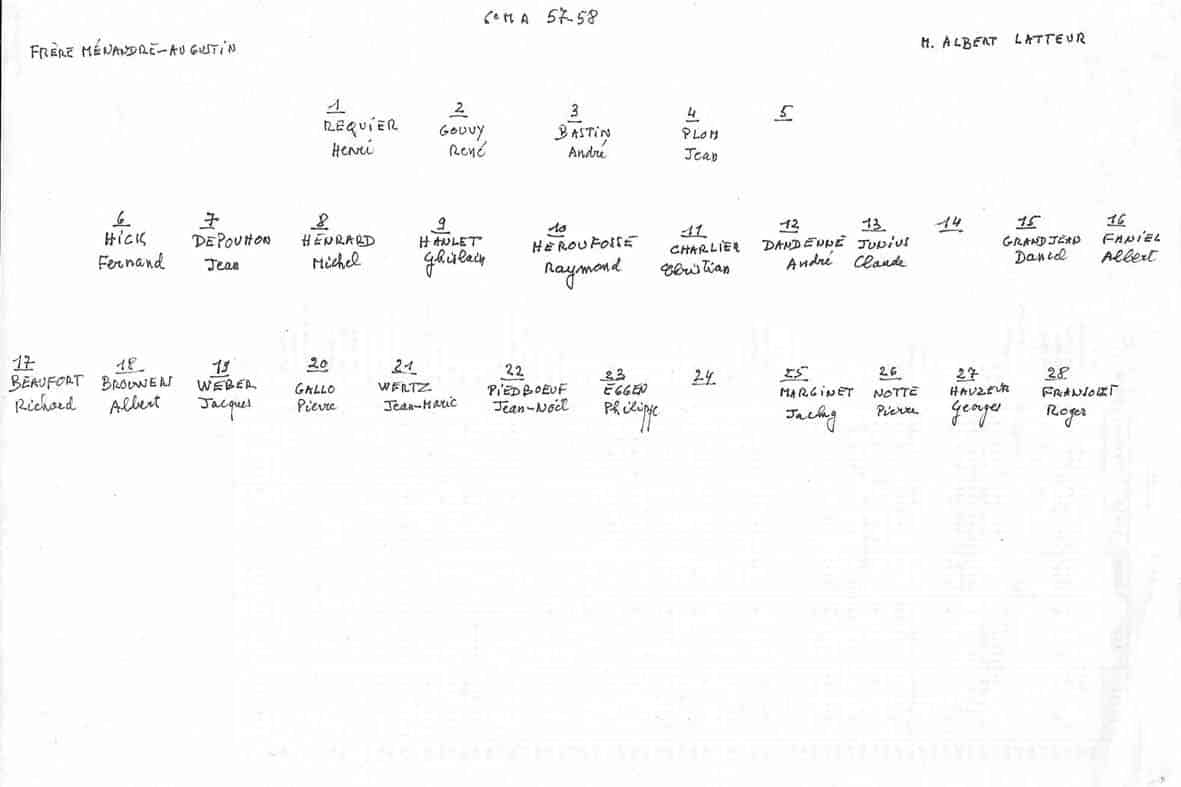 6e M A 57-58
FRÈRE MÉNANDRE-AUGUSTIN M. ALBERT LATTEUR
1 2 3 4 5
REQUIER GOUVY BASTIN PLOM
Henri René André Jean
6 7 8 9 10 11 12 13 14 15 16
HICK DEPOUHON HENRARD HANLET HEROUFOSSE CHARLIER DANDENNE JUNIUS GRANDJEAN FANIEL
Fernand Jean Michel Ghislain Raymond Christian André Claude Daniel Albert
17 18 19 20 21 22 23 24 25 26 27 28
BEAUFORT BROUWERS WEBER GALLO WERTZ PIEDBOEUF EGGEN MARGINET NOTTE HAUZEUR
Richard Albert Jacques Pierre Jean-Marie Jean-Noël Philippe Pierre Georges Roger